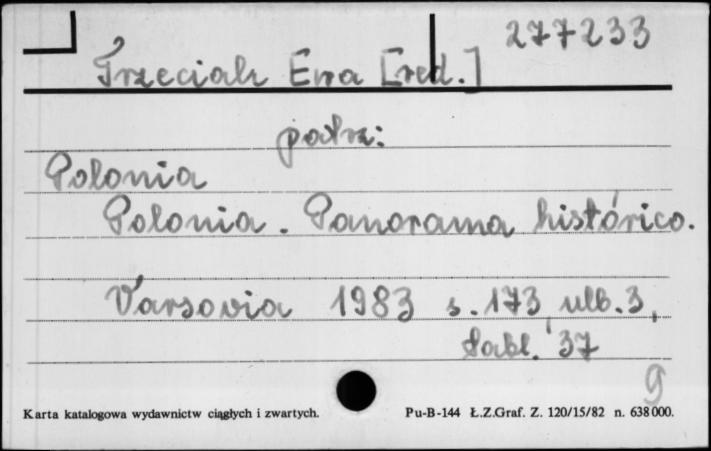 277233
Trzeciak Ewa [red.]
patrz:
Polonia
Polonia. Panorama histórico.
Varsovia 1983 s. 173, nlb. 3,
tabl. 37
g
Karta katalogowa wydawnictw ciągłych i zwartych. Pu-B-144 Ł.Z.Graf. Z. 120/15/82 n. 638 000.